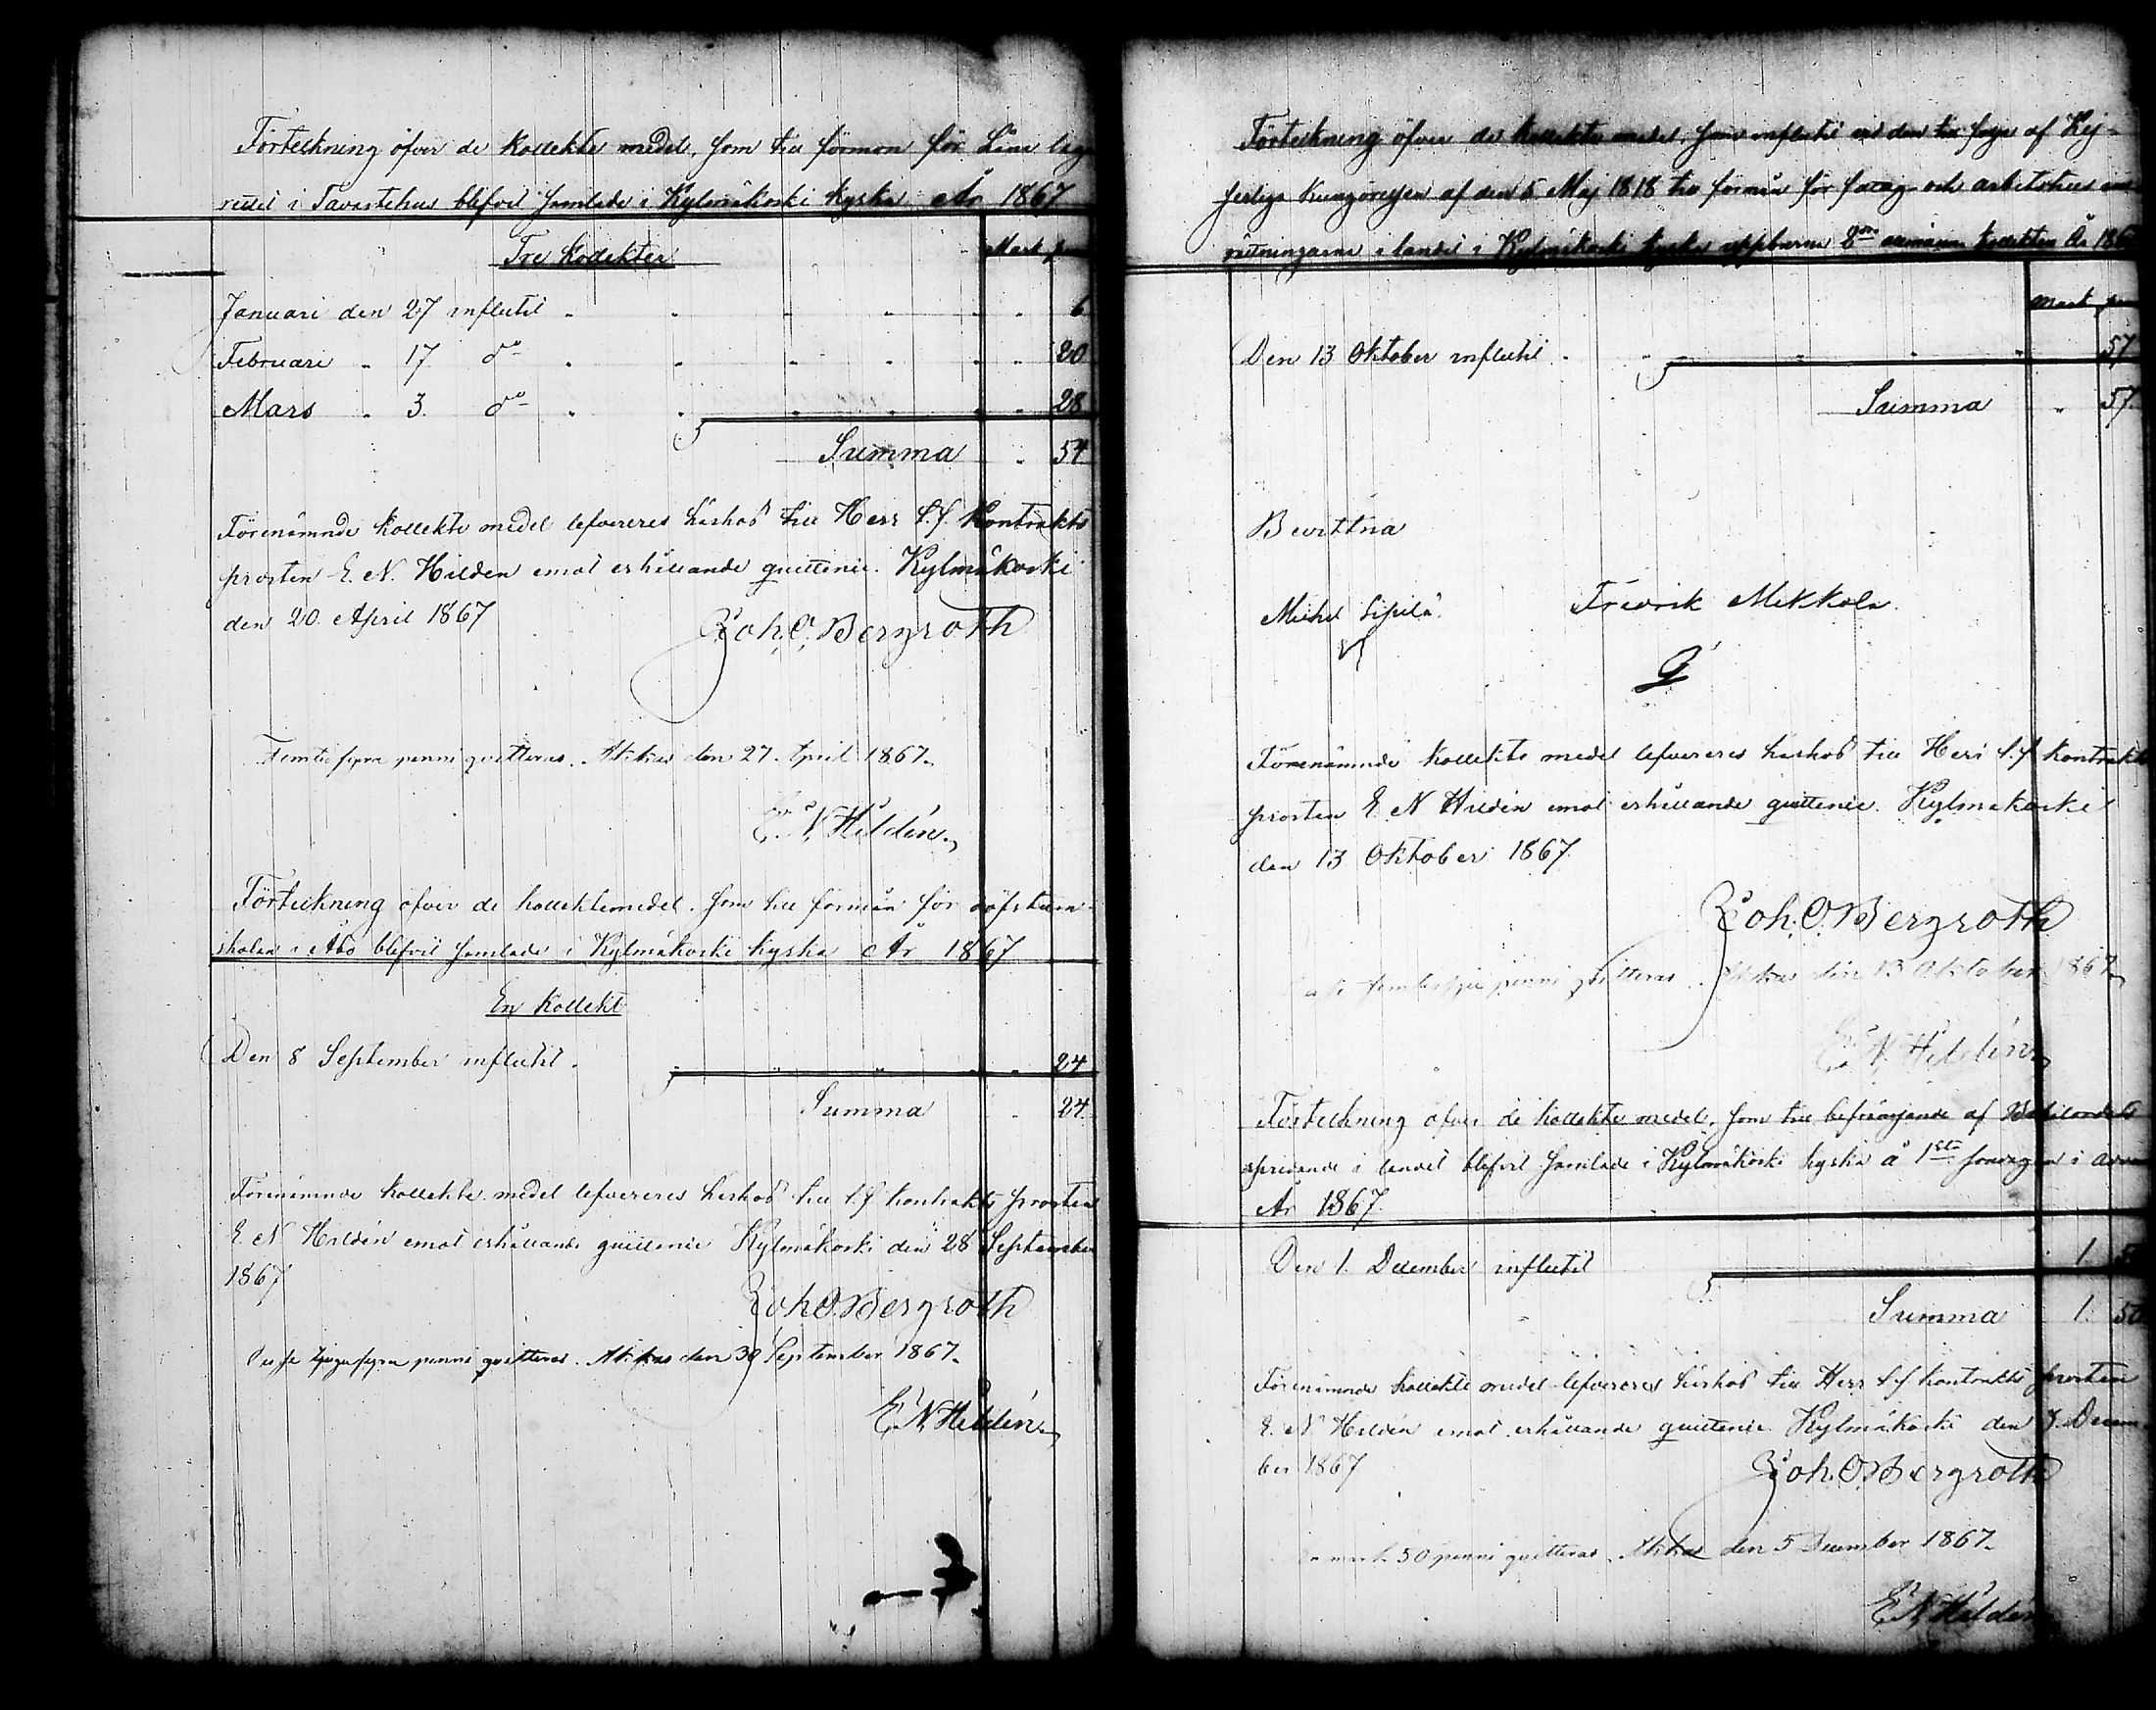 Förteckning öfver de Kollekte medel, som till förmon för Läns laza
rettet i Tavastehus blefvit samlade i Kylmäkoski kyrka År 1867
Tre Kollekter
Mark penni
Januari den 27 influtit " 6
Februari " 17 do " 20
Mars " 3. do " 28
Summa " 54
Förenämnde Kollekte medel lefvereres härhos till Herr t.f. Kontrakts
prosten E. N. Hildén emot erhållande quittence. Kylmäkoski
den 20. April 1867
Joh. O. Bergroth
Femtiofyra penni qvitteras. Akkas den 27. April 1867.
E. N. Hildén.
Förteckning öfver de kollektemedel, som till förmån för döfstum-
skolan i Åbo blefvit samlade i Kylmäkoski kyrka År 1867
En Kollekt
Den 8 September influtit. " 24
Summa " 24.
Förenämnde kollekte medel lefvereres härhos till t.f. kontrakts prosten
E. N. Hildén emot erhållande quittence Kylmäkoski den 28 September
1867
Joh. O. Bergroth
Desse tjugufyra penni qvitteras. Akkas den 30 September 1867.
E. N. Hildén.
Förteckning öfver de kollekte medel, som influtit vid den till följe af Kej-
serliga Kungörelsen af den 5 Maj 1818 till förmån för fattig och arbetshus in
rättningarne i landet i Kylmäkoski kyrka uppburne allmänna kollekten År 186
Mark penni
Den 13 Oktober influtit. " 57
Summa " 57.
Bevittna
Michel Sipilä. Fredrik Mikkola.
Förenämnde kollekte medel lefvereres härhos till Herr t.f. kontrakts
prosten E. N Hildén emot erhållande quittence. Kylmäkoski
den 13 Oktober 1867.
Joh. O. Bergroth
Desse femtiosju penni qvitteras. Akkas den 13 Oktober 1867.
E. N. Hildén
Förteckning öfver de kollekte medel, som till befrämjande af
spridande i landet blefvit samlade i Kylmäkoski kyrka å 1sta söndagen i adven
År 1867.
Den 1. December influtit 1. 5
Summa 1. 50
Förenämnde kollekte medel lefvereres härhos till Herr t.f. kontrakts prosten
E. N. Hildén emot erhållande quittence. Kylmäkoski den Decem
ber 1867
Joh. O. Bergroth
En mark 50 penni qvitteras. Akkas den 5 December 1867.
E. N. Hildén